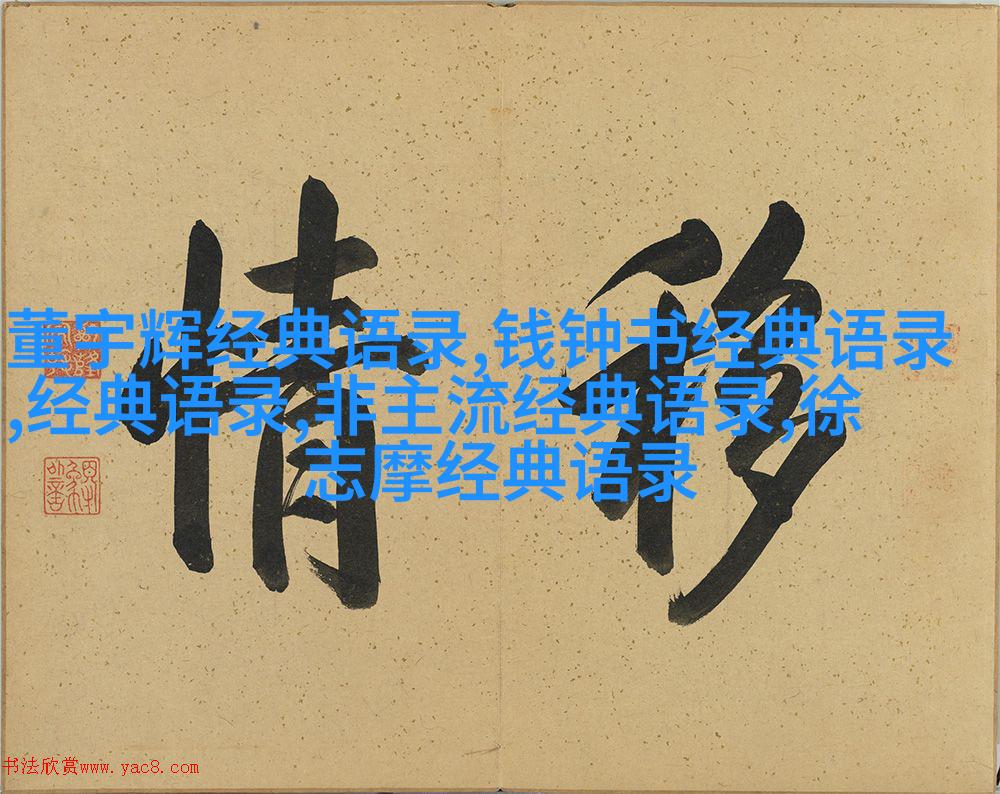 移情
董宇辉经典语录,钱钟书经典语录
,经典语录,非主流经典语录,徐
志摩经典语录
书法欣赏www.yac8.com